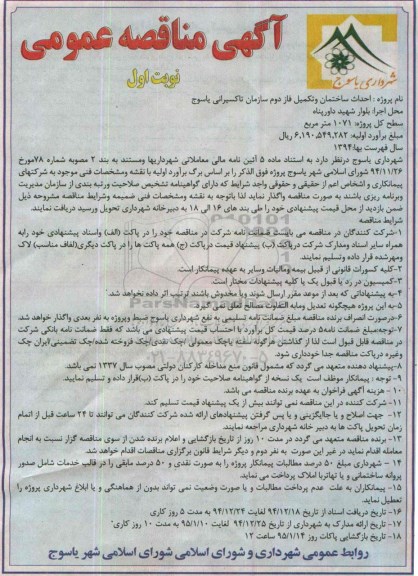 آگهی مناقصه عمومی
نوبت اول
شهرداری یاسوج
نام پروژه : احداث ساختمان وتکمیل فاز دوم سازمان تاکسیرانی یاسوج
محل اجرا: بلوار شهید داورپناه
سطح کل پروژه: ۱۰۷۱ متر مربع
مبلغ برآورد اولیه: ۶,۱۹۰,۵۴۹,۲۸۲ ریال
سال فهرست بها:۱۳۹۴
شهرداری یاسوج درنظر دارد به استناد ماده ۵ آئین نامه مالی معاملاتی شهرداریها ومستند به بند ۲ مصوبه شماره ۷۸مورخ
۹۴/۱۱/۲۶ شورای اسلامی شهر یاسوج پروژه فوق الذکر را بر اساس برگ برآورد اولیه با نقشه ومشخصات فنی موجود به شرکتهای
پیمانکاری و اشخاص اعم از حقیقی و حقوقی واجد شرایط که دارای گواهینامه تشخیص صلاحیت ورتبه بندی از سازمان مدیریت
وبرنامه ریزی باشند به صورت مناقصه واگذار نماید. لذا باتوجه به نقشه ومشخصات فنی ضمیمه وشرایط مناقصه مشروحه ذیل
ضمن بازدید از محل قیمت پیشنهادی خود را طی بند های ۱۶ الی ۱۸ به دبیرخانه شهرداری تحویل ورسید دریافت نمایند.
شرایط مناقصه
۱-شرکت کنندگان در مناقصه می بایست ضمانت نامه شرکت در مناقصه خود را در پاکت (الف) واسناد پیشنهادی خود رابه
همراه سایر اسناد ومدارک شرکت درپاکت (ب) پیشنهاد قیمت درپاکت (ج) همه پاکت ها را در پاکت دیگری(لفاف مناسب) لاک
ومهرشده قرار داده وتسلیم نمایند.
۲-کلیه کسورات قانونی از قبیل بیمه ومالیات وسایر به عهده پیمانکار است.
۳-کمیسیون در رد یا قبول یک یا کلیه پیشنهادات مختار است.
۴-به پیشنهاداتی که بعد از موعد مقرر ارسال شوند ویا مخدوش باشند ترتیب اثر داده نخواهد شد.
۵-به این پروژه هیچگونه تعدیل ومابه التفاوت مصالح تعلق نمی گیرد.
۶-درصورت انصراف برنده مناقصه مبلغ ضمانت نامه تسلیمی به نفع شهرداری یاسوج ضبط وپروژه به نفر بعدی واگذار خواهد شد.
۷-توجه:مبلغ ضمانت نامه۵ درصد قیمت کل برآورد با احتساب قیمت پیشنهادی می باشد که فقط ضمانت نامه بانکی شرکت
در مناقصه قابل قبول است لذا از گذاشتن هرگونه سفته یاچک معمولی /چک نقدی/چک فروخته شده/چک تضمینی/ایران چک
وغیره درپاکت مناقصه جدا خودداری شود.
۸-پیشنهاد دهنده متعهد می گردد که مشمول قانون منع مداخله کارکنان دولتی مصوب سال ۱۳۳۷ نمی باشد.
۹- توجه : پیمانکار موظف است یک نسخه از گواهینامه صلاحیت خود را در پاکت (ب)قرار داده و تسلیم نمایید.
۱۰- هزینه آگهی فراخوان به عهده برنده مناقصه می باشد.
۱۱- شرکت کننده در این مناقصه نمی توانند بیش از یک پیشنهاد قیمت تسلیم کند.
۱۲- جهت اصلاح و یا جایگزینی و یا پس گرفتن پیشنهادهای ارائه شده شرکت کنندگان می توانند تا ۲۴ ساعت قبل از اتمام
زمان تحویل پاکت ها به دبیر خانه شهرداری مراجعه نمایند.
۱۳- برنده مناقصه متعهد می گردد در مدت ۱۰ روز از تاریخ بازگشایی و اعلام برنده شدن از سوی مناقصه گزار نسبت به انجام
معامله اقدام نماید در غیر این صورت به نفر دوم و دیگر شرایط قانون برگزاری مناقصات اقدام خواهد شد.
۱۴ – شهرداری مبلغ ۵۰ درصد مطالبات پیمانکار پروژه را به صورت نقدی و ۵۰ درصد مابقی را در قالب خدمات شامل صدور
پروانه ساختمانی و یا تهاتربا املاک پرداخت می نماید.
۱۵- پیمانکاران به علت عدم پرداخت مطالبات و یا صورت وضعیت نمی تواند بدون از هماهنگی و یا ابلاغ شهرداری پروژه را
تعطیل نماید.
۱۶- تاریخ دریافت اسناد از تاریخ ۹۴/۱۲/۱۸ لغایت ۹۴/۱۲/۲۴ به مدت ۵ روز کاری
۱۷- تاریخ ارائه مدارک به شهرداری از تاریخ ۹۴/۱۲/۲۵ لغایت ۹۵/۱/۱۰ به مدت ۱۰ روز کاری
۱۸- تاریخ بازگشایی پاکات روز ۹۵/۱/۱۴ ساعت ۱۲
روابط عمومی شهرداری و شورای اسلامی شورای اسلامی شهر یاسوج